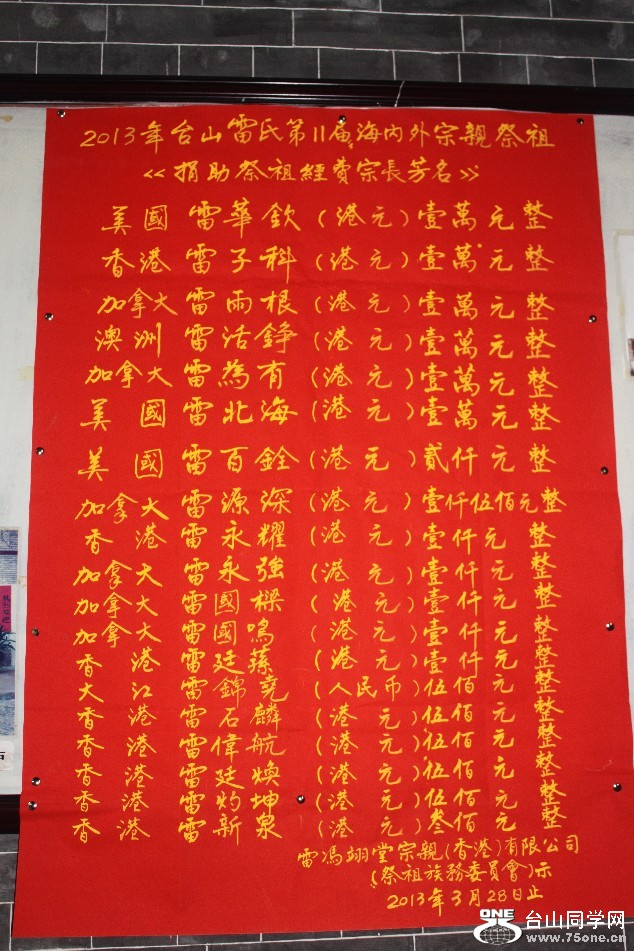 2013年台山雷氏第11届海内外宗親祭祖
《捐助祭祖經費宗長芳名》
美國 雷華欽 (港元) 壹萬元整
香港 雷子科 (港元) 壹萬元整
加拿大 雷雨根 (港元) 壹萬元整
澳洲 雷活錚 (港元) 壹萬元整
加拿大 雷為有 (港元) 壹萬元整
美國 雷北海 (港元) 壹萬元整
美國 雷百銓 (港元) 貳仟元整
加拿大 雷源深 (港元) 壹仟伍佰元整
香港 雷永耀 (港元) 壹仟元整
加拿大 雷永強 (港元) 壹仟元整
加拿大 雷國樑 (港元) 壹仟元整
加拿大 雷國鳴 (港元) 壹仟元整
香港 雷廷蓀 (港元) 壹仟元整
大江 雷錦堯 (人民币) 伍佰元整
香港 雷石麟 (港元) 伍佰元整
香港 雷偉航 (港元) 伍佰元整
香港 雷廷煥 (港元) 伍佰元整
香港 雷灼坤 (港元) 伍佰元整
香港 雷新泉 (港元) 叁佰元整
雷馮翊堂宗親(香港)有限公司
(祭祖族務委員會)示
2013年3月28日止
ONE 台山同学网
www.75one.cn